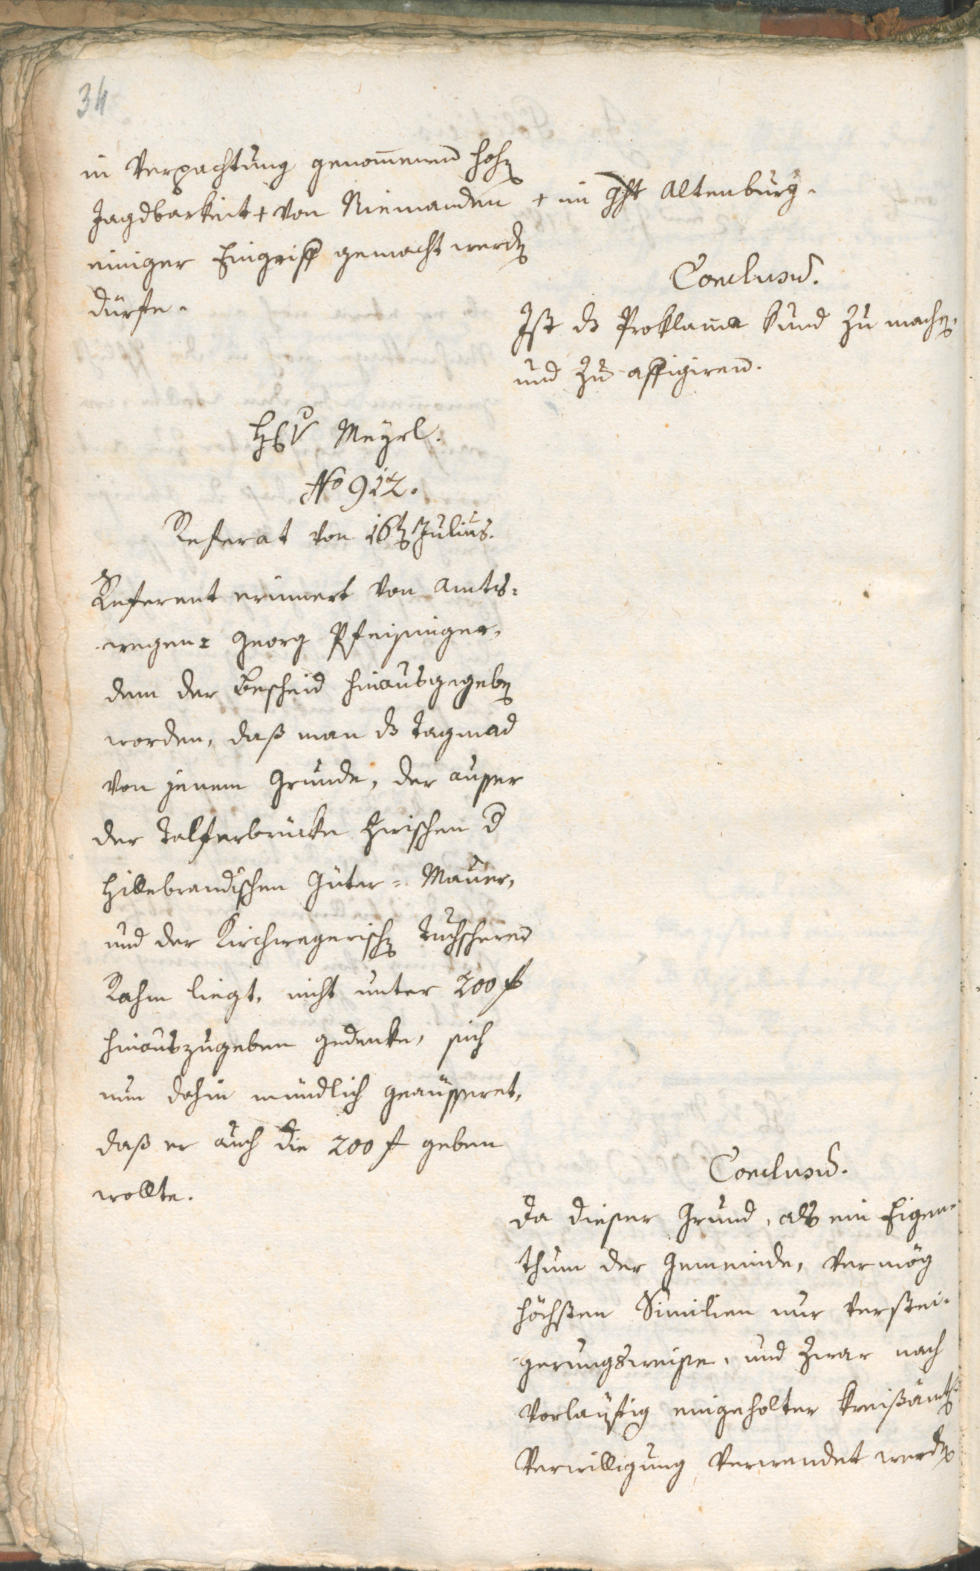 34
in Verpachtung genom̅enen hohen
Jagdbarkeit + von Niemanden
einiger Eingriff gemacht werden
dürfe.
+ im Ght Altenburg.
Conclusū.
Ist ds Proklama kund zu machen,
und zu affigiren.
H. v Meyrl.
No 912.
Referat von 16ten Julius.
Referent erinnert von Amts=
wegen: Georg Pfeisinger,
dem der Bescheid hinausgegeben
worden, daß man ds Tagmad
von jenem Grunde, der ausser
der Talferbrücke zwischen d
Hillebrandischen Güter= Mauer,
und der Kirchwegerischen Tuchscherer
Rahm liegt, nicht unter 200 f
hinauszugeben gedenke, sich
nun dahin mündlich geäusseret,
daß er auch die 200 f geben
wollte.
Conclusū.
Da dieser Grund, als ein Eigen=
thum der Gemeinde, vermög
höchsten Similien nur verstei=
gerungsweise, und zwar nach
vorläufig eingeholter kreisämtl
Verwilligung verwendet werden